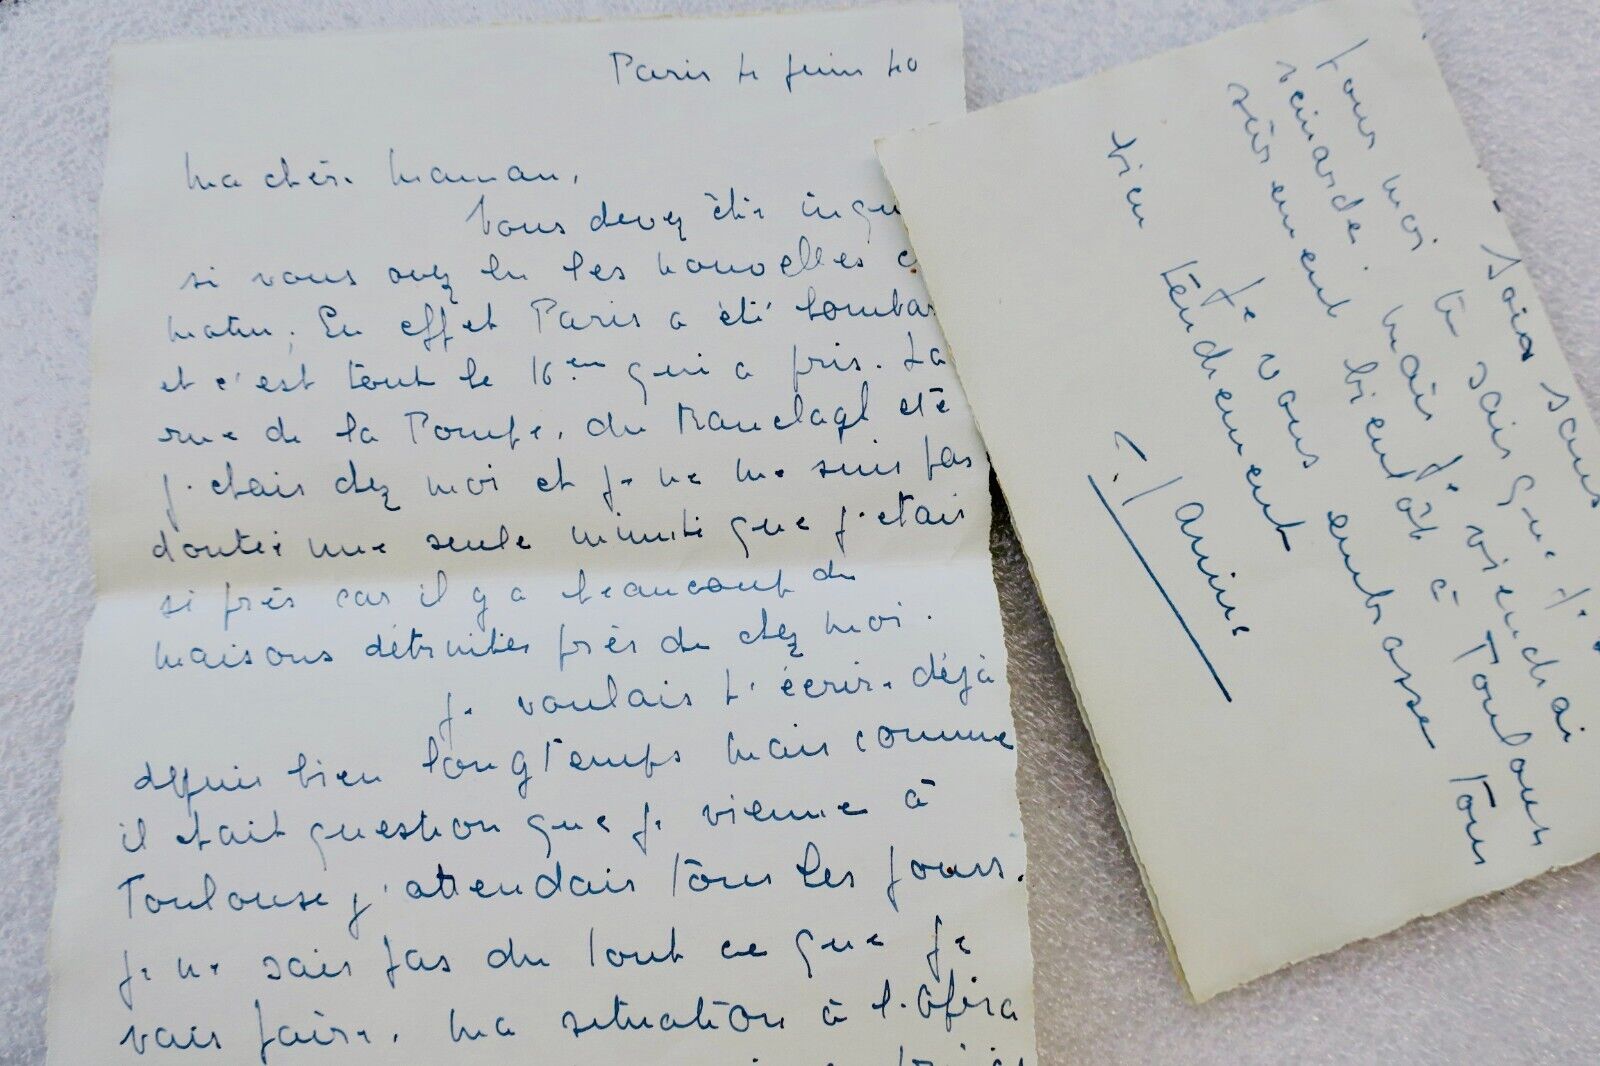 Paris 4 juin 40
Ma chère Maman,
Vous devez être inqu
si vous avez lu les nouvelles c
matin. En effet Paris a été bombar
et c'est tout le 16em qui a pris. La
rue de la Pompe, du Ranelagh etc
j'étais chez moi et je ne me suis pas
doutée une seule minute que j'étais
si près car il y a beaucoup de
maisons détruites près de chez moi.
Je voulais t'écrire déjà
depuis bien longtemps mais comme
il était question que je vienne à
Toulouse j'attendais tous les jours.
Je ne sais pas du tout ce que je
vais faire. Ma situation à l'Opéra
- Sois sans
pour moi tu sais que je
mais je viendrai
sûrement bientôt à Toulouse
Je vous embrasse tous
bien tendrement
Janine